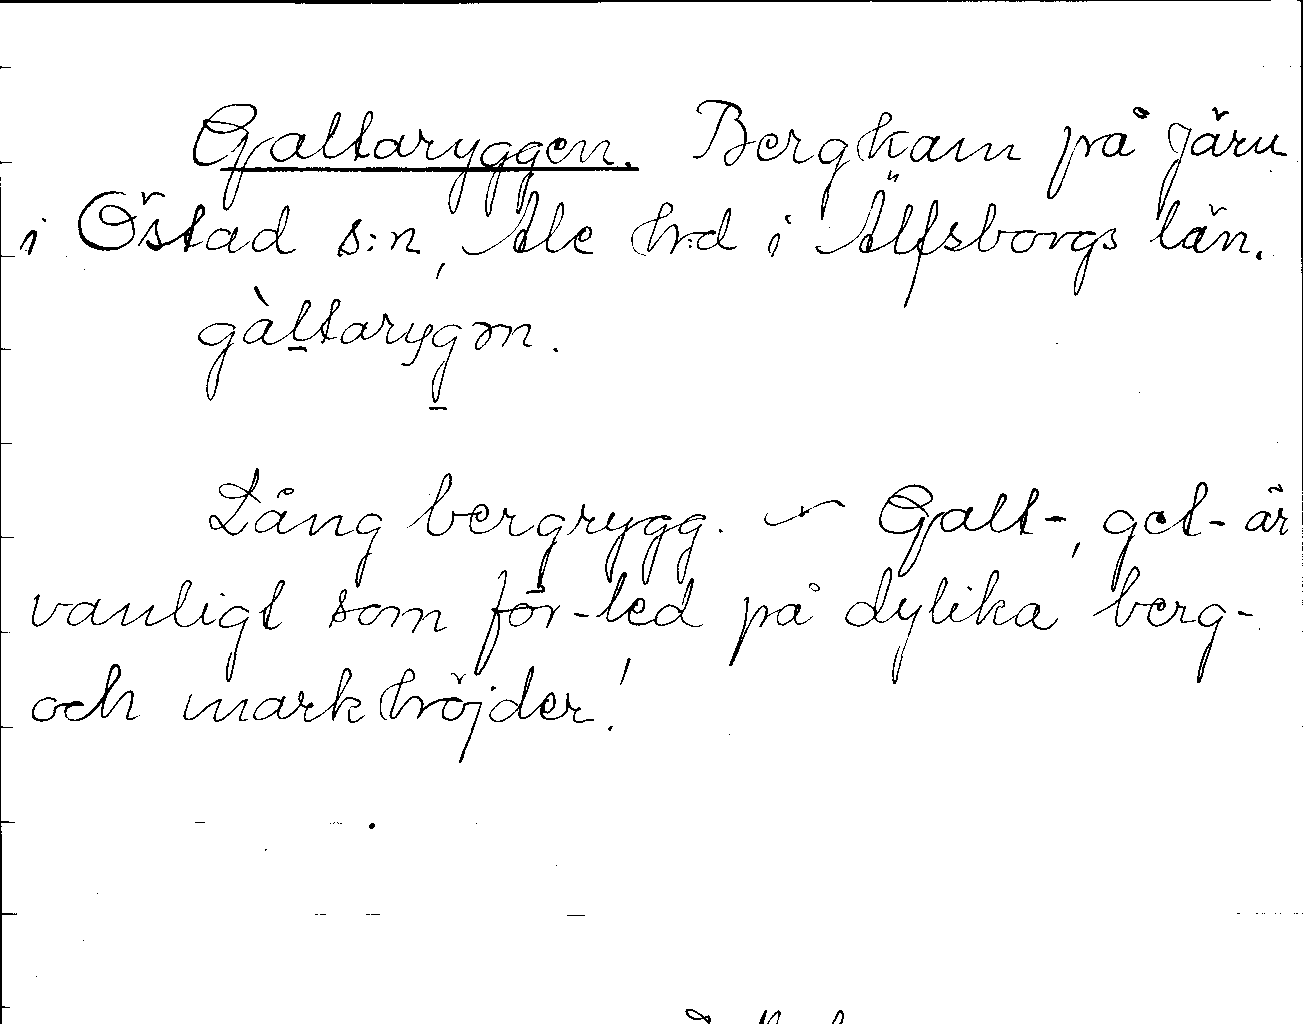 Galtaryggen. Bergkam på Järu
i Östad s:n, Ale hrd i Älfsborgs län.
gàltarygən.
Lång bergrygg. ~ Galt-, get- är
vanligt som för-led på dylika berg-
och markhöjder!